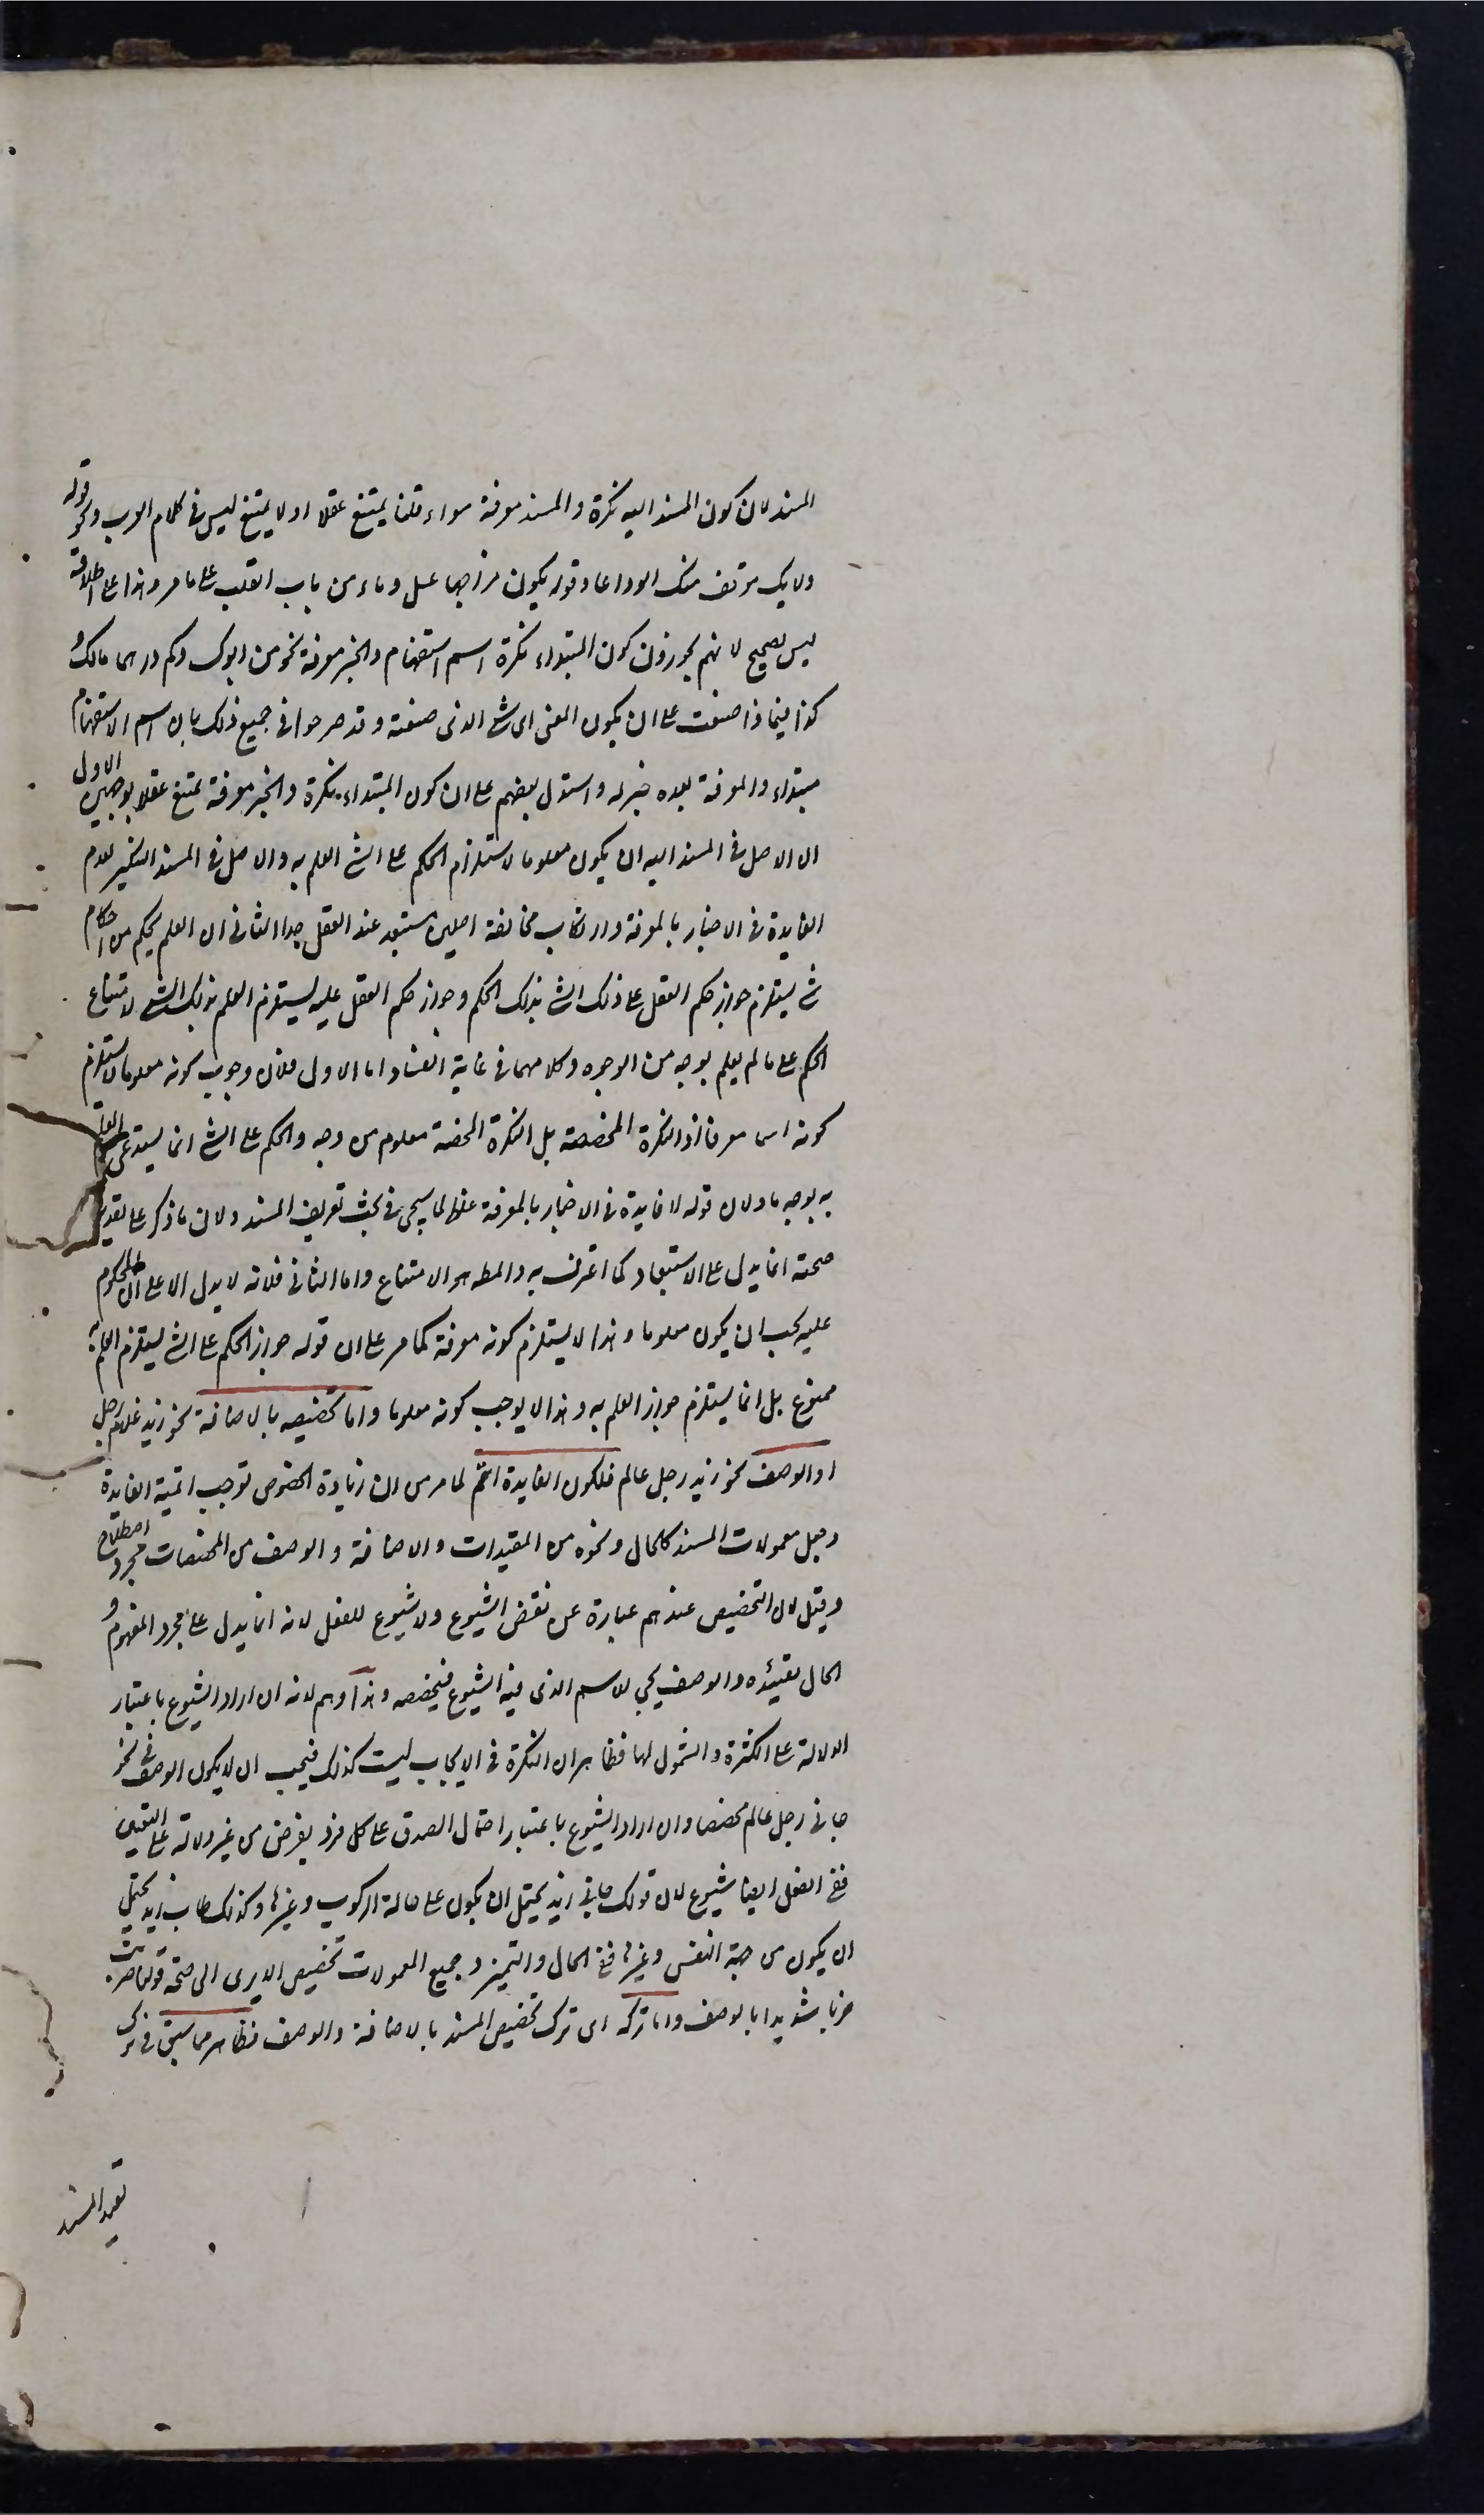 المسند لان كون المسند اليه نكرة والمسند معرفة سواء قلنا يمتنع عقلا او لا يمتنع ليس فى كلام العرب ونحو قوله
ولا يك موقف منك الوداعا وقوله يكون مزاجها عسل وماء من باب القلب على ما مر وهذا على اطلاقه
ليس بصحيح لانهم يجوزون كون المبتداء نكرة اسم استفهام والخبر معرفة نحو من ابوك وكم درهما مالك و
كذا فيما ذا صنعت على ان يكون المعنى اى شئ الذى صنعته وقد صرحوا فى جميع ذلك بان اسم الاستفهام
مبتداء والمعرفة بعده خبر له واستدل بعضهم على ان كون المبتداء نكرة والخبر معرفة ممتنع عقلا بوجهين الاول
ان الاصل فى المسند اليه ان يكون معلوما لاستلزام الحكم على الشئ العلم به والاصل فى المسند التنكير لعدم
الفايدة فى الاخبار بالمعرفة وارتكاب مخالفة اصلين مستبعد عند العقل جدا الثانى ان العلم بحكم من احكام
شئ يستلزم جواز حكم العقل على ذلك الشئ بذلك الحكم وجواز حكم العقل عليه يستلزم العلم بذلك الشئ لامتناع
الحكم على ما لم يعلم بوجه من الوجوه وكلاهما فى غاية الفساد اما الاول فلان وجوب كونه معلوما لا يستلزم
كونه اسما معرفا اذ النكرة المخصصة بل النكرة المحضة معلوم من وجه والحكم على الشئ انما يستدعى العلم
به بوجه ما ولان قوله لا فايدة فى الاخبار بالمعرفة غلط لما سيجى فى بحث تعريف المسند ولان ما ذكر على تقدير
صحته انما يدل على الاستبعاد كما اعترف به والمط هو الامتناع واما الثانى فلانه لا يدل الا على ان المحكوم
عليه يجب ان يكون معلوما وهذا لا يستلزم كونه معرفة كما مر على ان قوله جواز الحكم على الشئ يستلزم العلم به
ممنوع بل انما يستلزم جواز العلم به وهذا لا يوجب كونه معلوما واما تخصيصه بالاضافة نحو زيد غلام رجل
او الوصف نحو زيد رجل عالم فلكون الفايدة اتم لما مر من ان زيادة الخصوص توجب اتمية الفايدة
وجعل معمولات المسند كالحال ونحوه من المقيدات والاضافة والوصف من المخصصات مجرد اصطلاح
وقيل لان التخصيص عندهم عبارة عن نقض الشيوع ولا شيوع للفعل لانه انما يدل على مجرد المفهوم و
الحال تقيده والوصف يجى للاسم الذى فيه الشيوع فيخصصه وهذا وهم لانه ان اراد الشيوع باعتبار
الدلالة على الكثرة والشمول لها فظاهر ان النكرة فى الايجاب ليست كذلك فيجب ان لا يكون الوصف فى نحو
جاءنى رجل عالم مخصصا وان اراد الشيوع باعتبار احتمال الصدق على كل فرد يفرض من غير دلالة على التعيين
ففى الفعل ايضا شيوع لان قولك جاءنى زيد يحتمل ان يكون على حالة الركوب وغيرها وكذلك طاب زيد يحتمل
ان يكون من جهة النفس وغيرها ففى الحال والتميز وجميع المعمولات تخصيص الا يرى الى صحة قولنا ضربت
ضربا شديدا بالوصف واما تركه اى ترك تخصيص المسند بالاضافة والوصف فظاهر مما سبق فى ترك
تقييد المسند